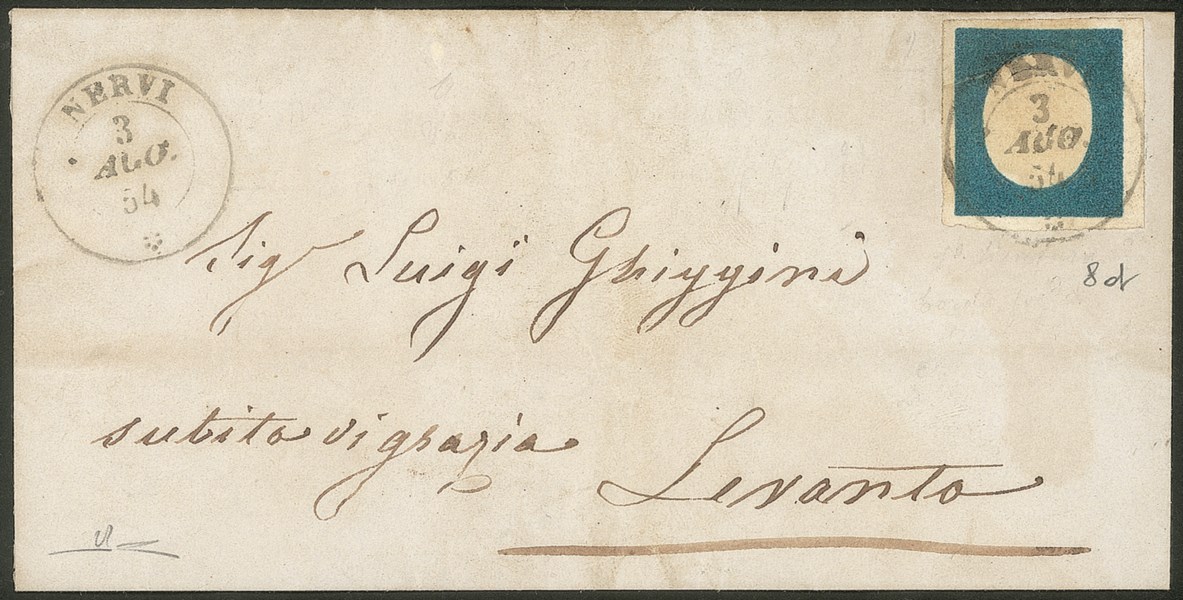 NERVI
3
AGO.
54
NERVI
3
AGO.
54
Sig Luigi Ghiggini
8d
subito vi grazia
Levanto